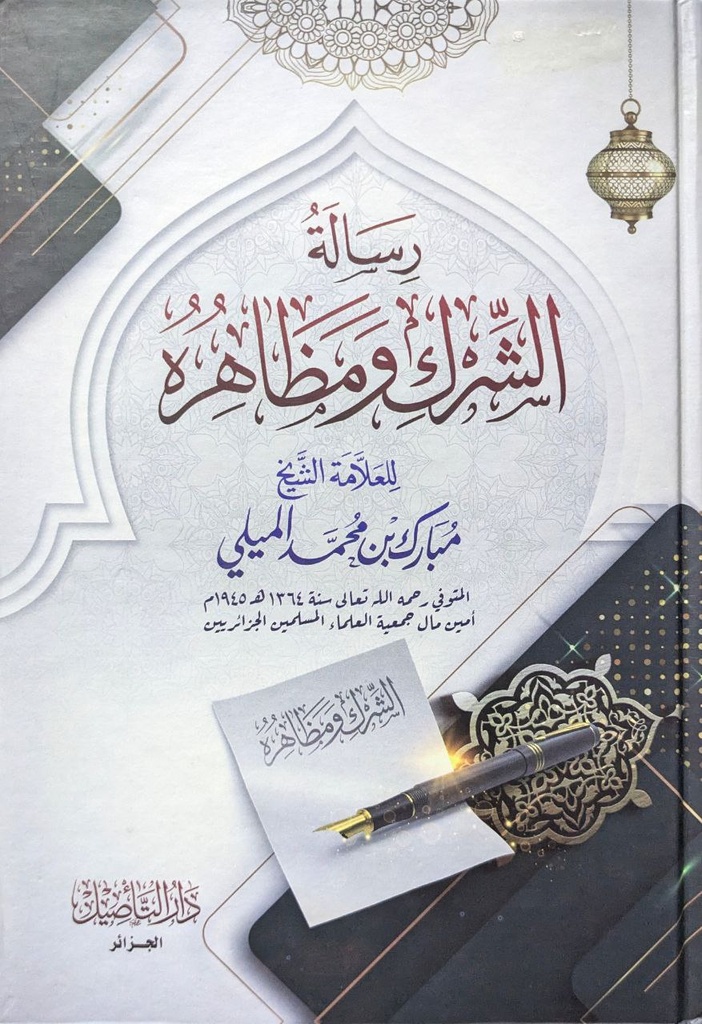 رِسَالَةُ
الشِّركِ وَمَظَاهِرُهُ
لِلعَلَّامَة الشَّيْخِ
مُبَارَك بْن مُحَمَّد الميلي
المتوفي رحمه الله تعالى سنة ١٣٦٤هـ ١٩٤٥م
أمين مال جمعية العلماء المسلمين الجزائريين
الشِّركِ وَمَظَاهِرُهُ
دَارُ التَّأصِيل
الجزائر